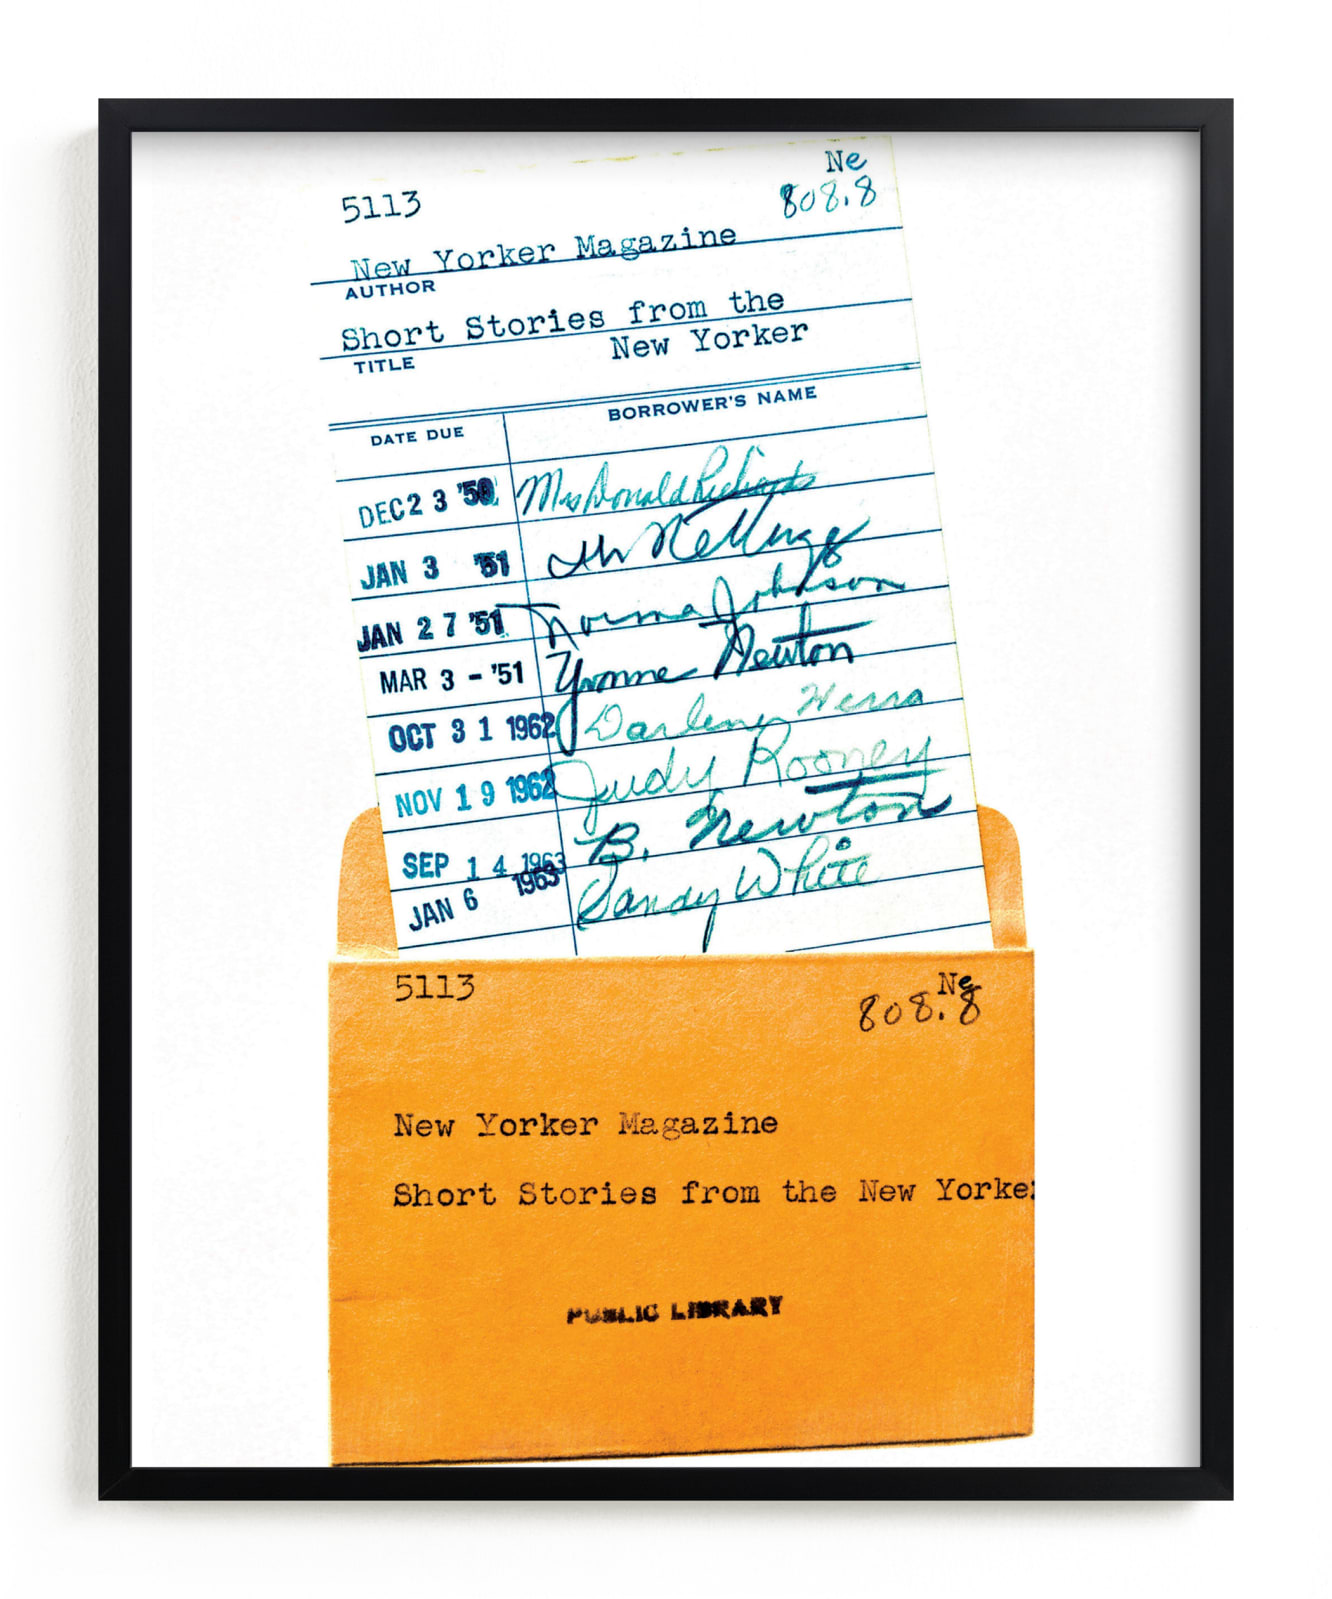 5113
Ne
808.8
New Yorker Magazine
AUTHOR
Short Stories from the
New Yorker
TITLE
DATE DUE BORROWER'S NAME
DEC 23 '50 Mrs Donald Richards
JAN 3 '51
JAN 27 '51 Norma Johnson
MAR 3 - '51 Yvonne Newton
OCT 31 1962 Darlene
NOV 19 1962 Judy Rooney
SEP 14 1963 B. Newton
JAN 6 1963 Sandy White
5113
Ne
808.8
New Yorker Magazine
Short Stories from the New Yorke
PUBLIC LIBRARY